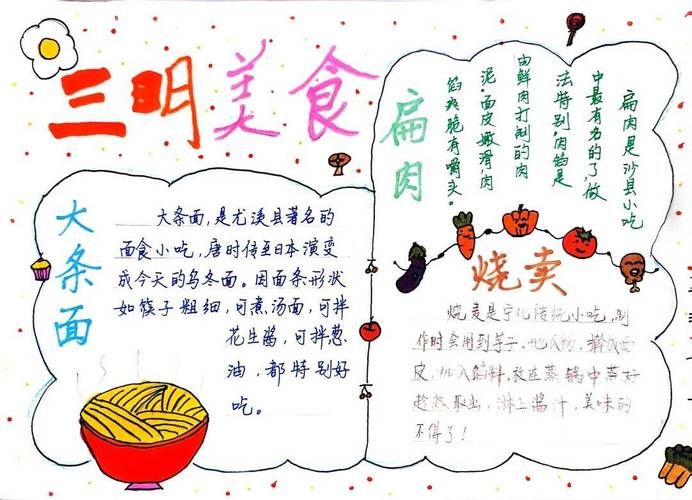 三明美食
大条面
大条面,是尤溪县著名的
面食小吃,唐时传至日本演变
成今天的乌冬面。因面条形状
如筷子粗细,可煮汤面,可拌
花生酱,可拌葱
油,都特别好
吃。
扁肉
扁肉是沙县小吃
中最有名的了,做
法特别,肉馅是
由鲜肉打制的肉
泥,面皮嫩滑,肉
馅爽脆有嚼头。
烧卖
烧麦是宁化传统小吃,制
作时会用到芋子、地瓜粉,
皮,加入馅料,放在蒸锅中蒸好
趁热取出,淋上酱汁,美味的
不得了!